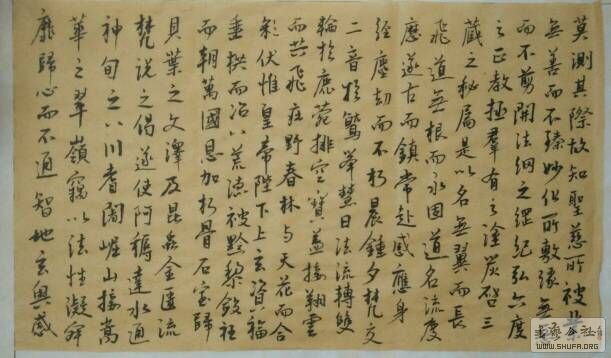 莫測其際故知聖慈所被業
無善而不臻妙化所敷緣無
而不剪開法網之綱紀弘六度
之正教拯羣有之塗炭啓三
藏之秘扃是以名無翼而長
飛道無根而永固道名流慶
歷遂古而鎮常赴感應身
經塵劫而不朽晨鍾夕梵交
二音於鷲峯慧日法流轉雙
輪於鹿菀排空寶蓋接翔雲
而共飛莊野春林与天花而合
彩伏惟皇帝陛下上玄資福
垂拱而治八荒德被黔黎斂衽
而朝萬國恩加朽骨石室歸
貝葉之文澤及昆虫金匱流
梵說之偈遂使阿耨達水通
神甸之八川耆闍崛山接嵩
華之翠嶺竊以法性凝寂
靡歸心而不通智地玄奧感
WWW.SHUFA.ORG